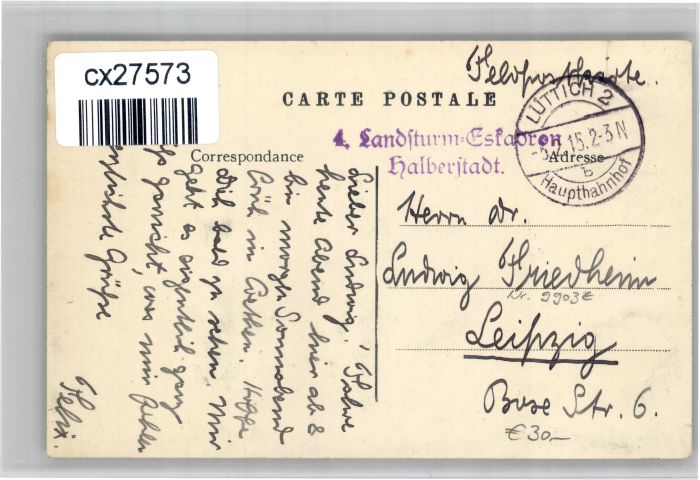 cx27573
Feldpostkarte.
CARTE POSTALE
LÜTTICH 2
15.2-3N
b
Hauptbahnhof
4. Landsturm-Eskadron
Halberstadt.
Correspondance
Adresse
Lieber Ludwig! Fahre
heute Abend hier ab &
bin morgen Sonnabend
früh in Hoffe
Dich bald zu sehen. Mir
geht es eigentlich ganz
gar nicht, was mir fehlen
Grüße
Felix.
Herrn Dr.
Ludwig Friedheim
Nr. 9903E
Leipzig
Bose Str. 6.
€30-